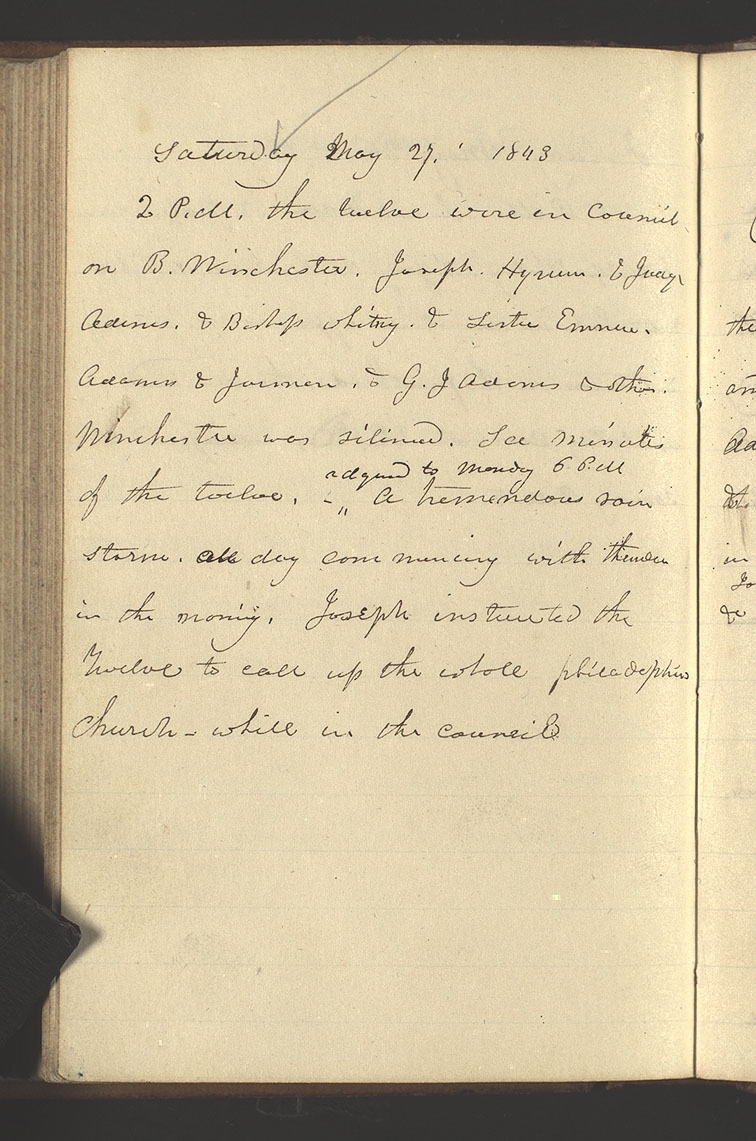 Saturday May 27. 1843
2 P.M. the twelve were in Council
on B. Winchester. Joseph. Hyrum. & Judge
Adams. & Bishop Whitny. & Sister Emma.
Adams & & G. J Adams & others.
Winchester was silined. See minutes
adjnd to Monday 6 P.M
of the twelve. - „ A tremendous rain
storm. all day commencing with thunder
in the morning. Joseph instructed the
Twelve to call up the whole philadephia
Church - while in the council
the
an
Ada
in
Jo
&